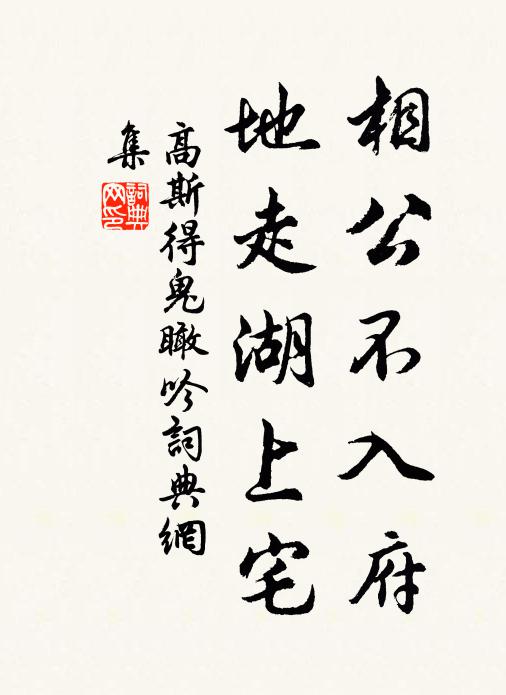 相公不入府
地走湖上宅
高斯得鬼瞰吟詞典網
集
詞典網印